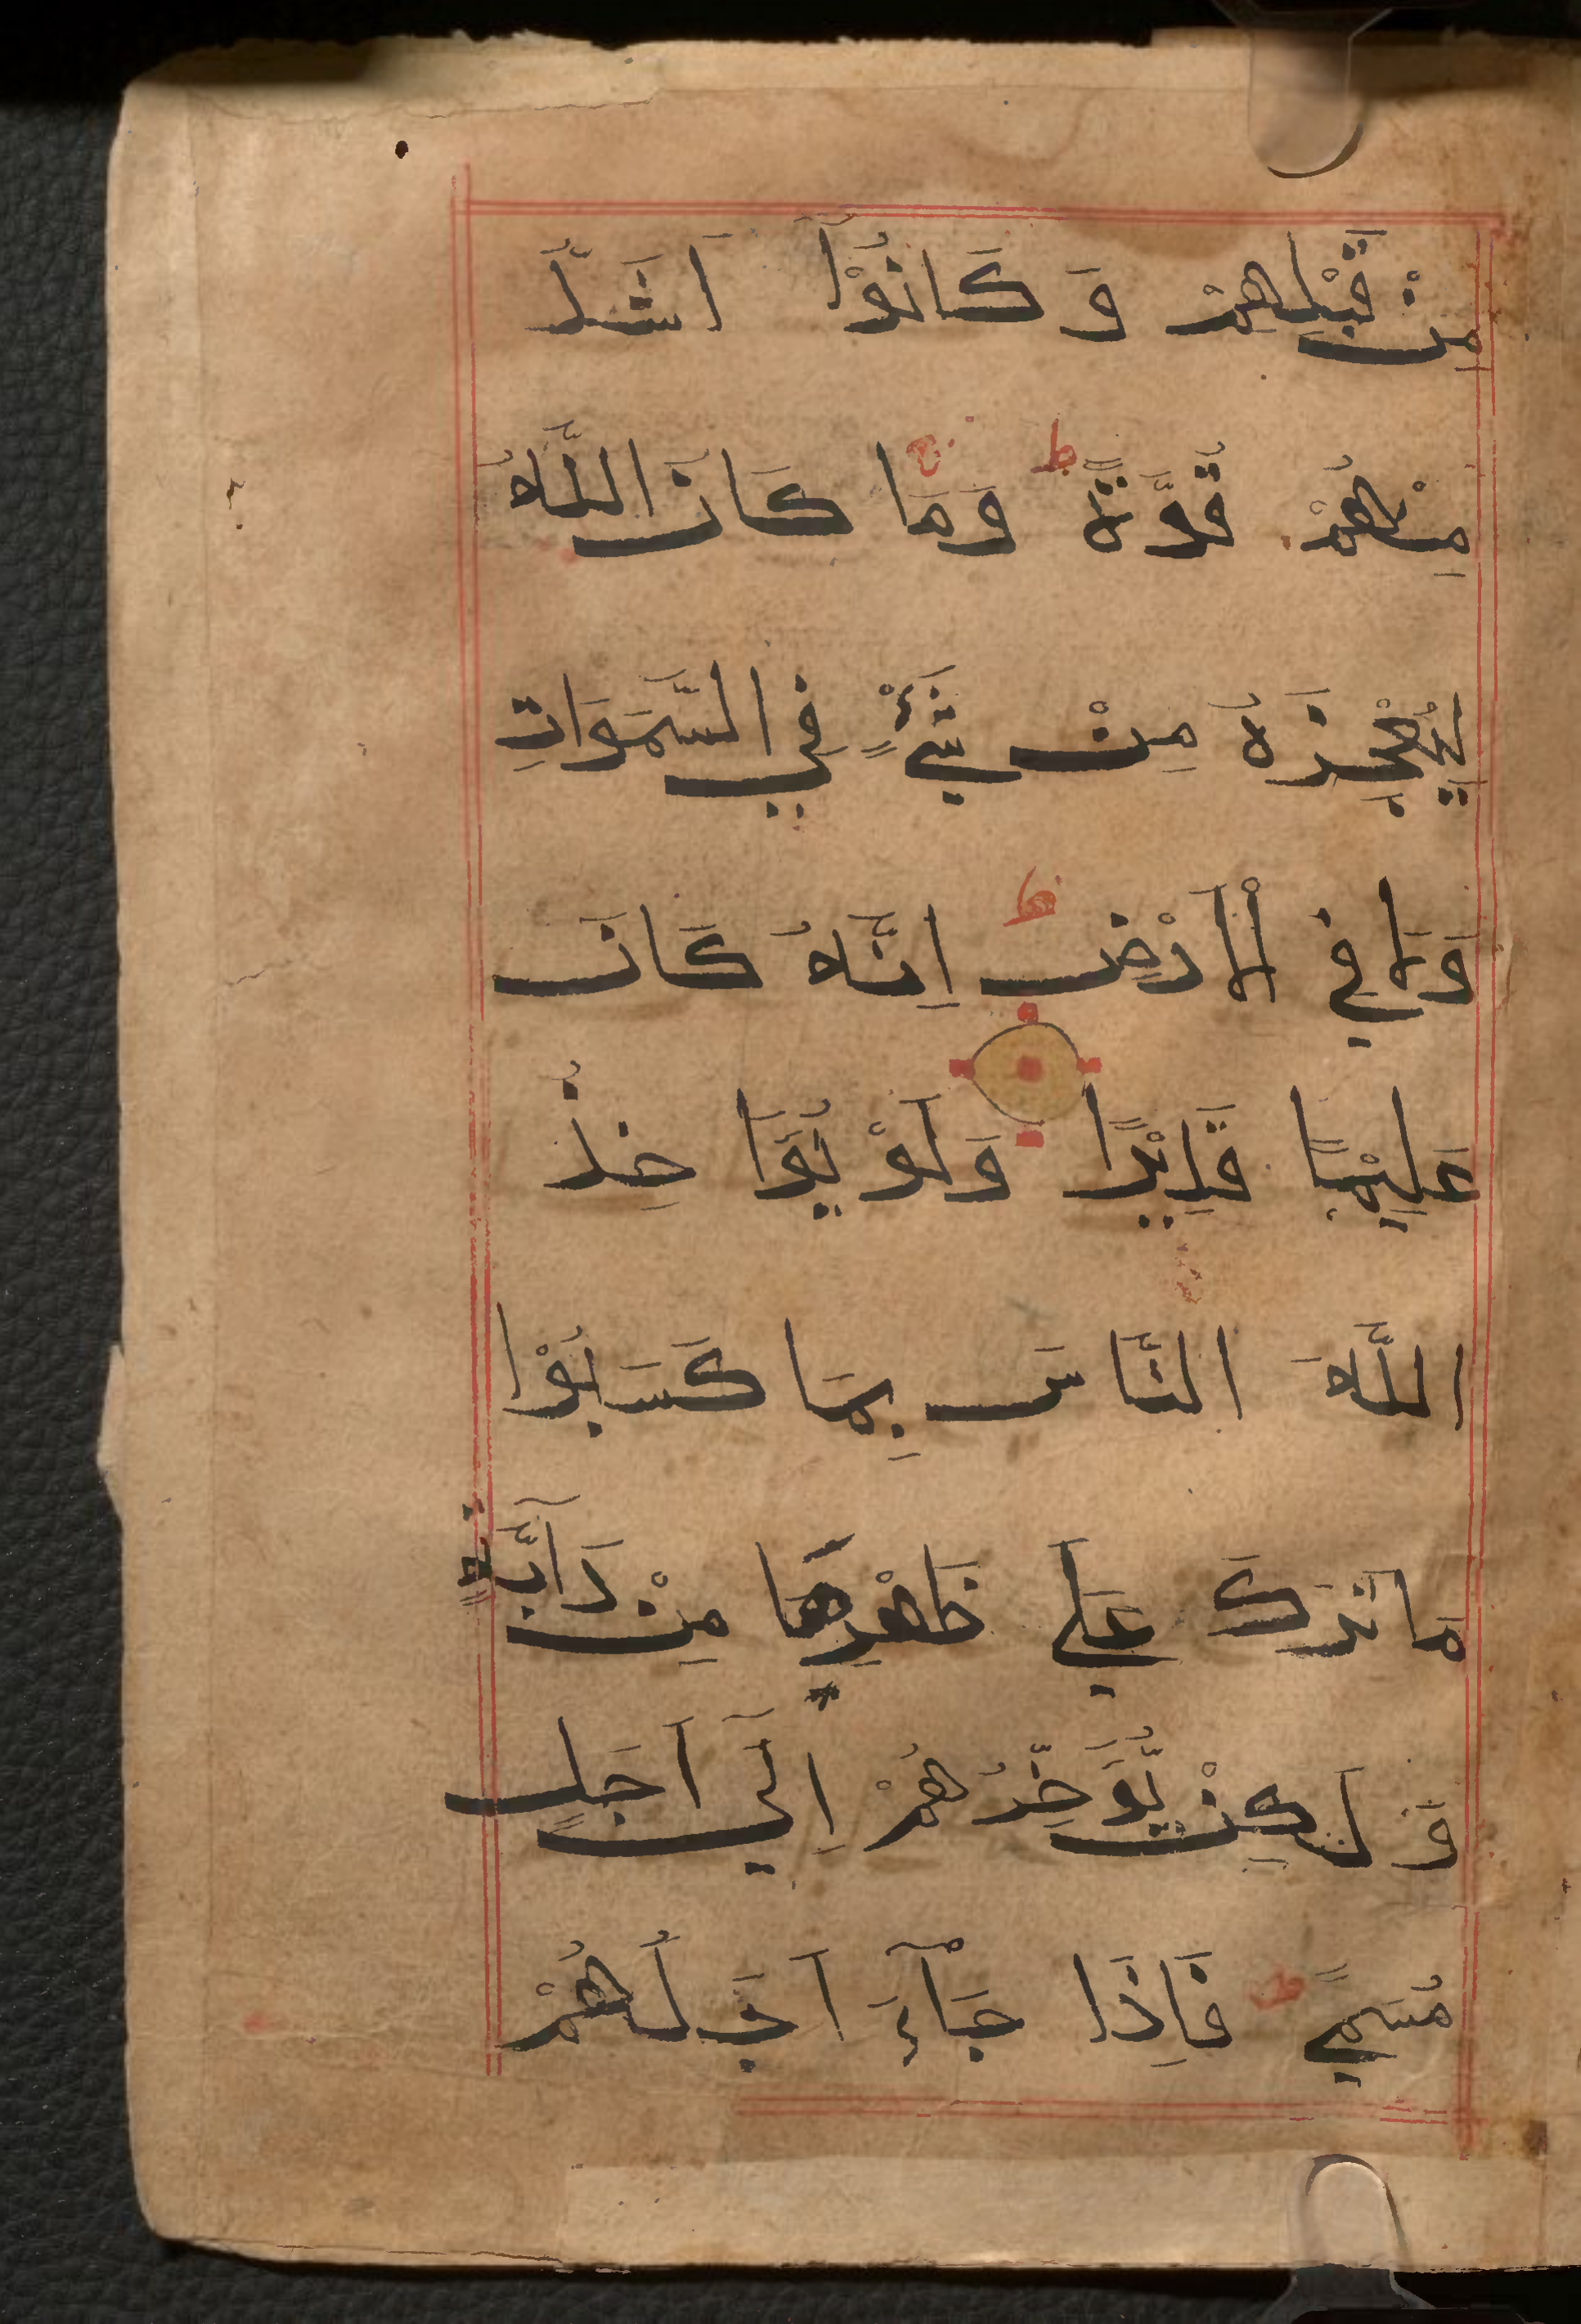 مِنْ قَبْلِهِمْ وَكَانُوْا اَشَدُّ
مِنْهُمْ قُوَّةً ط وَمَا كَانَ اللّٰهُ
لِيُعْجِزَهُ مِنْ شَيْءٍ فِي السَّمَوَاتِ
وَلَا فِي الْاَرْضِ ط اِنَّهُ كَانَ
عَلِيْمًا قَدِيْرًا وَلَوْ يُؤَاخِذُ
اللّٰهُ النَّاسَ بِمَا كَسَبُوْا
مَا تَرَكَ عَلَي ظَهْرِهَا مِنْ دَآبَّةٍ
وَلَكِنْ يُّؤَخِّرُهُمْ اِلَي اَجَلٍ
مُسَمًي ط فَاِذَا جَآءَ اَجَلُهُمْ